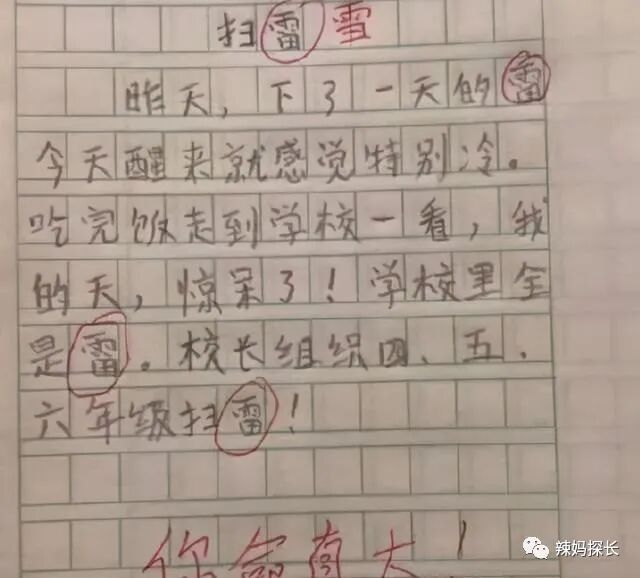 扫雷 雪
昨天，下了一天的雷
今天醒来就感觉特别冷。
吃完饭走到学校一看，我
的天，惊呆了！学校里全
是雷。校长组织四、五、
六年级扫雷！
你命真大！
辣妈探长